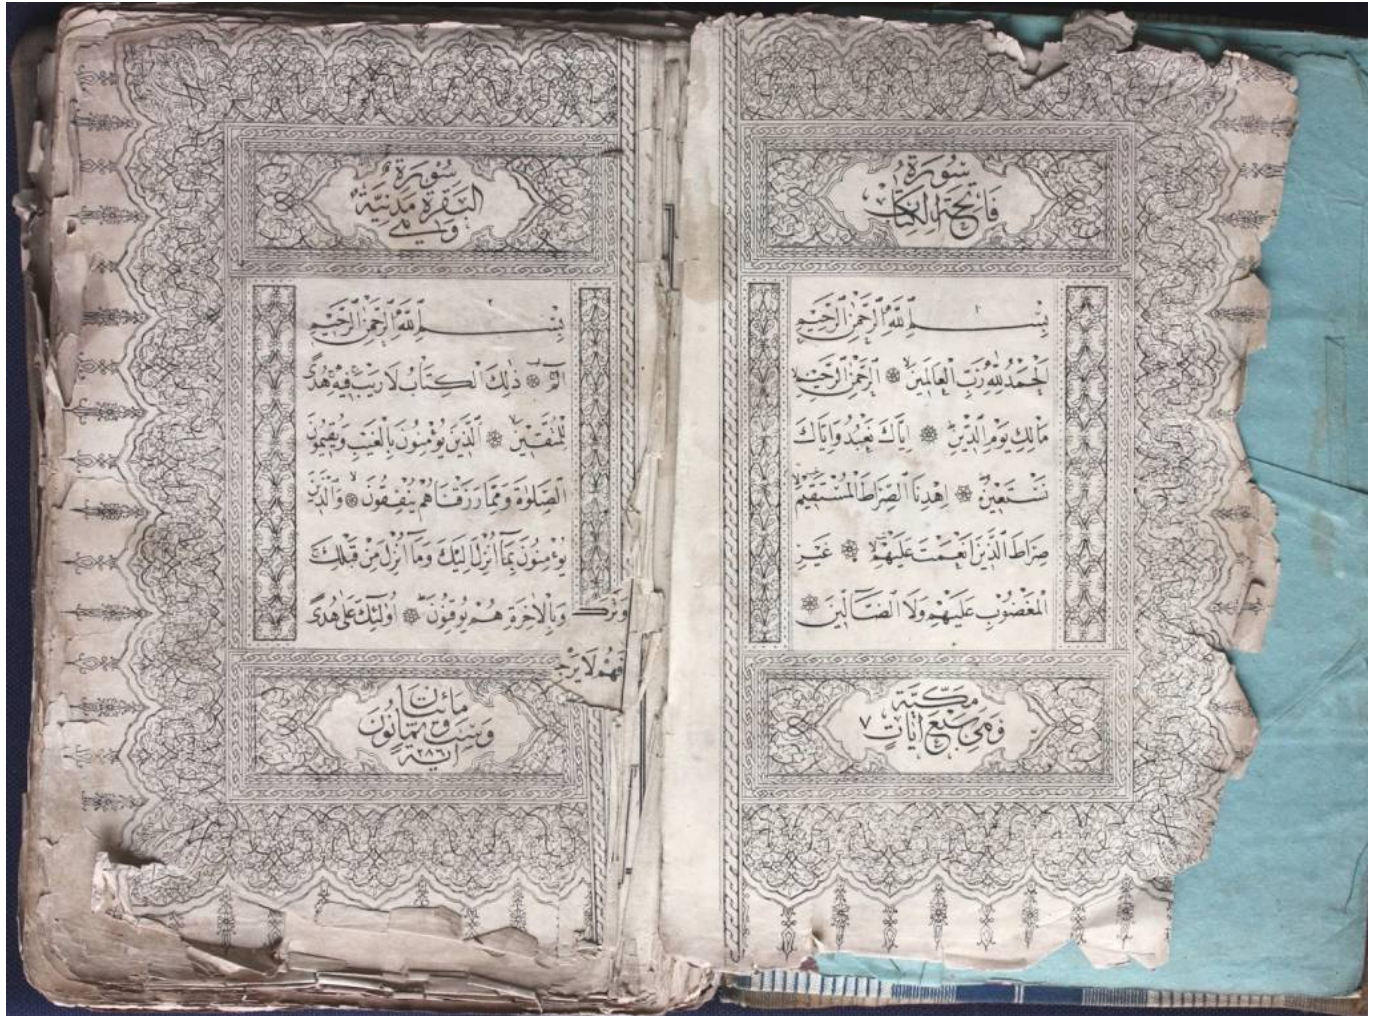 سُورَةُ
فَاتِحَةِ الْكِتَابِ
١
بِسْمِ اللّٰهِ الرَّحْمٰنِ الرَّحِيمِ
اَلْحَمْدُ لِلّٰهِ رَبِّ الْعَالَمِينَ ۞ اَلرَّحْمٰنِ الرَّحِيمِ
مَالِكِ يَوْمِ الدِّينِ ۞ اِيَّاكَ نَعْبُدُ وَاِيَّاكَ
نَسْتَعِينُ ۞ اِهْدِنَا الصِّرَاطَ الْمُسْتَقِيمَ
صِرَاطَ الَّذِينَ اَنْعَمْتَ عَلَيْهِمْ ۞ غَيْرِ
الْمَغْضُوبِ عَلَيْهِمْ وَلَا الضَّالِّينَ ۞
مَكِّيَّةٌ
وَهِيَ سَبْعُ اٰيَاتٍ ٧
سُورَةُ
الْبَقَرَةِ مَدَنِيَّةٌ
وَهِيَ
٢
بِسْمِ اللّٰهِ الرَّحْمٰنِ الرَّحِيمِ
الٓمٓ ۞ ذٰلِكَ الْكِتَابُ لَا رَيْبَ فِيهِ هُدًى
لِلْمُتَّقِينَ ۞ اَلَّذِينَ يُؤْمِنُونَ بِالْغَيْبِ وَيُقِيمُونَ
الصَّلٰوةَ وَمِمَّا رَزَقْنَاهُمْ يُنْفِقُونَ ۞ وَالَّذِينَ
يُؤْمِنُونَ بِمَٓا اُنْزِلَ اِلَيْكَ وَمَٓا اُنْزِلَ مِنْ قَبْلِكَ
وَبِالْاٰخِرَةِ هُمْ يُوقِنُونَ ۞ اُولٰٓئِكَ عَلٰى هُدًى
مِائَتَانِ
وَسِتٌّ وَثَمَانُونَ
اٰيَةً ٢٨٦
فَهُمْ لَا